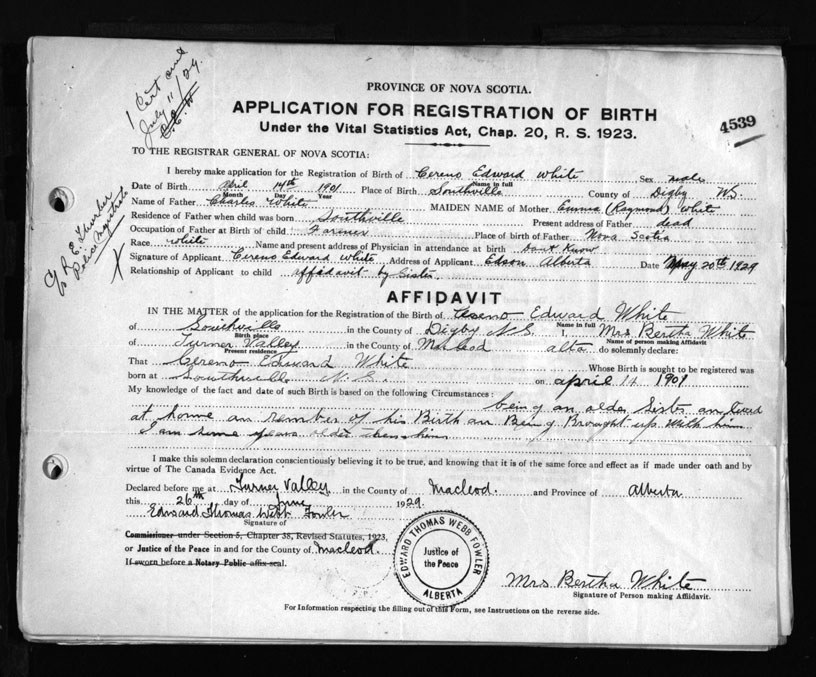 1 Cert out
July 11/29.
PROVINCE OF NOVA SCOTIA.
APPLICATION FOR REGISTRATION OF BIRTH
Under the Vital Statistics Act, Chap. 20, R. S. 1923.
4539
TO THE REGISTRAR GENERAL OF NOVA SCOTIA:
I hereby make application for the Registration of Birth of Cereno Edward White Sex male
Name in full
Date of Birth April 14th 1901 Place of Birth Southville County of Digby N.S.
Month Day Year
Name of Father Charles White MAIDEN NAME of Mother Emma (Raymond) White
Residence of Father when child was born Southville Present address of Father dead
Occupation of Father at Birth of child Farmer Place of birth of Father Nova Scotia
Race white Name and present address of Physician in attendance at birth Dont Know
Signature of Applicant Cereno Edward White Address of Applicant Edson Alberta Date May 20th 1929
Relationship of Applicant to child affidavit by Sister.
c/o R. E. Thurber
Police Magistrate
X
AFFIDAVIT
IN THE MATTER of the application for the Registration of the Birth of Edward White
Name in full
of Southville in the County of Digby N.S. I, Mrs Bertha White
Birth place Name of person making Affidavit
of Turner Valley in the County of Macleod alta do solemnly declare:
Present residence
That Cereno Edward White Whose Birth is sought to be registered was
born at Southville N.S. on april 14 1901
My knowledge of the fact and date of such Birth is based on the following Circumstances:
being an older Sister an lived
at home an rember of his Birth an Being Brought up with him
I am nine years older then him
I make this solemn declaration conscientiously believing it to be true, and knowing that it is of the same force and effect as if made under oath and by
virtue of The Canada Evidence Act.
Declared before me at Turner Valley in the County of Macleod. and Province of Alberta
this 26th day of June 1929.
Edward Thomas Webb Fowler
Signature of
Commissioner under Section 5, Chapter 38, Revised Statutes, 1923,
or Justice of the Peace in and for the County of Macleod.
If sworn before a Notary Public affix seal.
EDWARD THOMAS WEBB FOWLER
Justice of
the Peace
ALBERTA
Mrs Bertha White
Signature of Person making Affidavit.
For Information respecting the filling out of this Form, see Instructions on the reverse side.